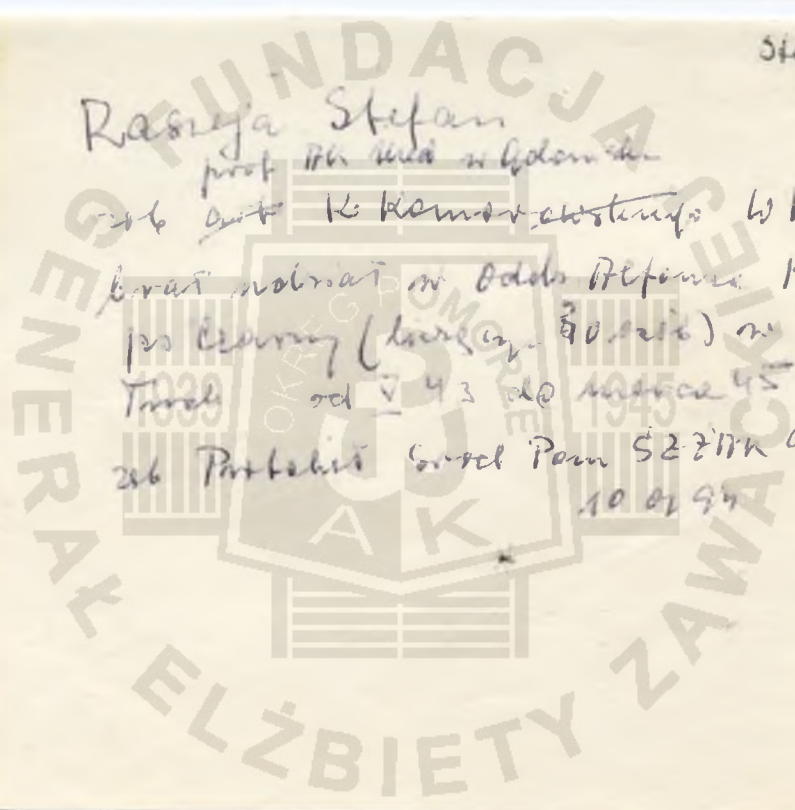 Sta
Raszeja Stefan
prof Ak Med w Gdańsku
zob K. Komorowskiego W
brał udział w Oddz Alfonsa
ps Czarny (liczący 30 osób) w
od V 43 do marca 45
zob Protokół Środ Pom ŚZŻAK
10 94
FUNDACJA
GENERAŁ ELŻBIETY ZAWACKIEJ
OKRĘG POMORZE
1939
1945
AK